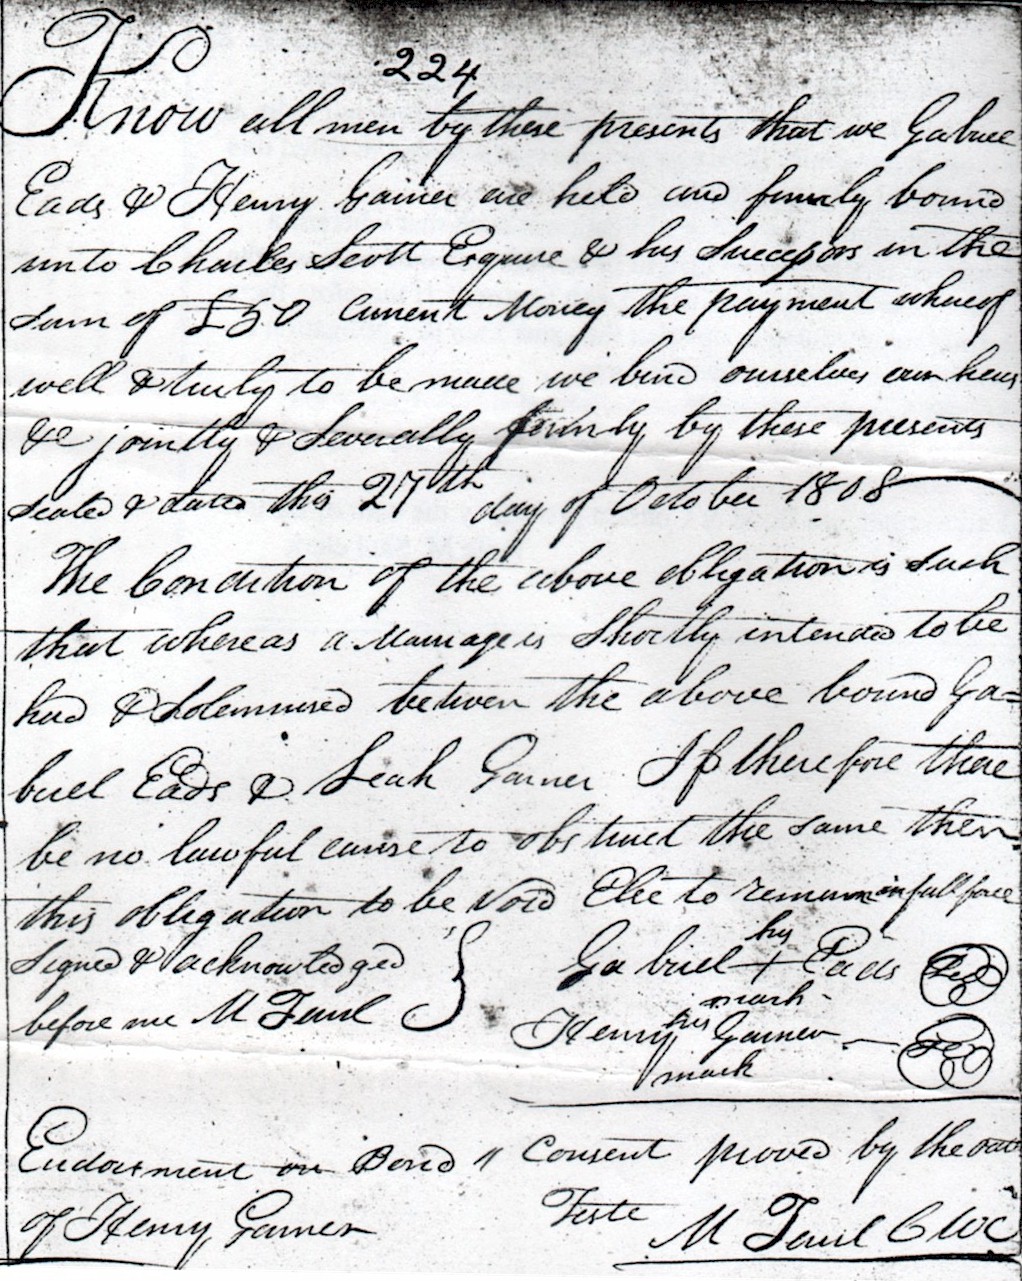 224
Know all men by these presents that we Gabriel
Eads & Henry Gainer are held and firmly bound
unto Charles Scott Esquire & his Successors in the
sum of £50 Current Money the payment whereof
well & truly to be made we bind ourselves our heirs
&c jointly & Severally firmly by these presents
sealed & dated this 27th day of October 1808
The Condition of the above obligation is Such
that whereas a Marriage is Shortly intended to be
had & Solemnised between the above bound Ga=
briel Eads & Leah Garner If therefore there
be no lawful cause to obstruct the same then
this obligation to be Void Else to remain in full force
Signed & acknowledged
before me M Taul
his
Gabriel + Eads
mark
his
Henry Garner
mark
Endorsment on Bond " Consent proved by the oath
of Henry Garner
Teste M Taul CWC